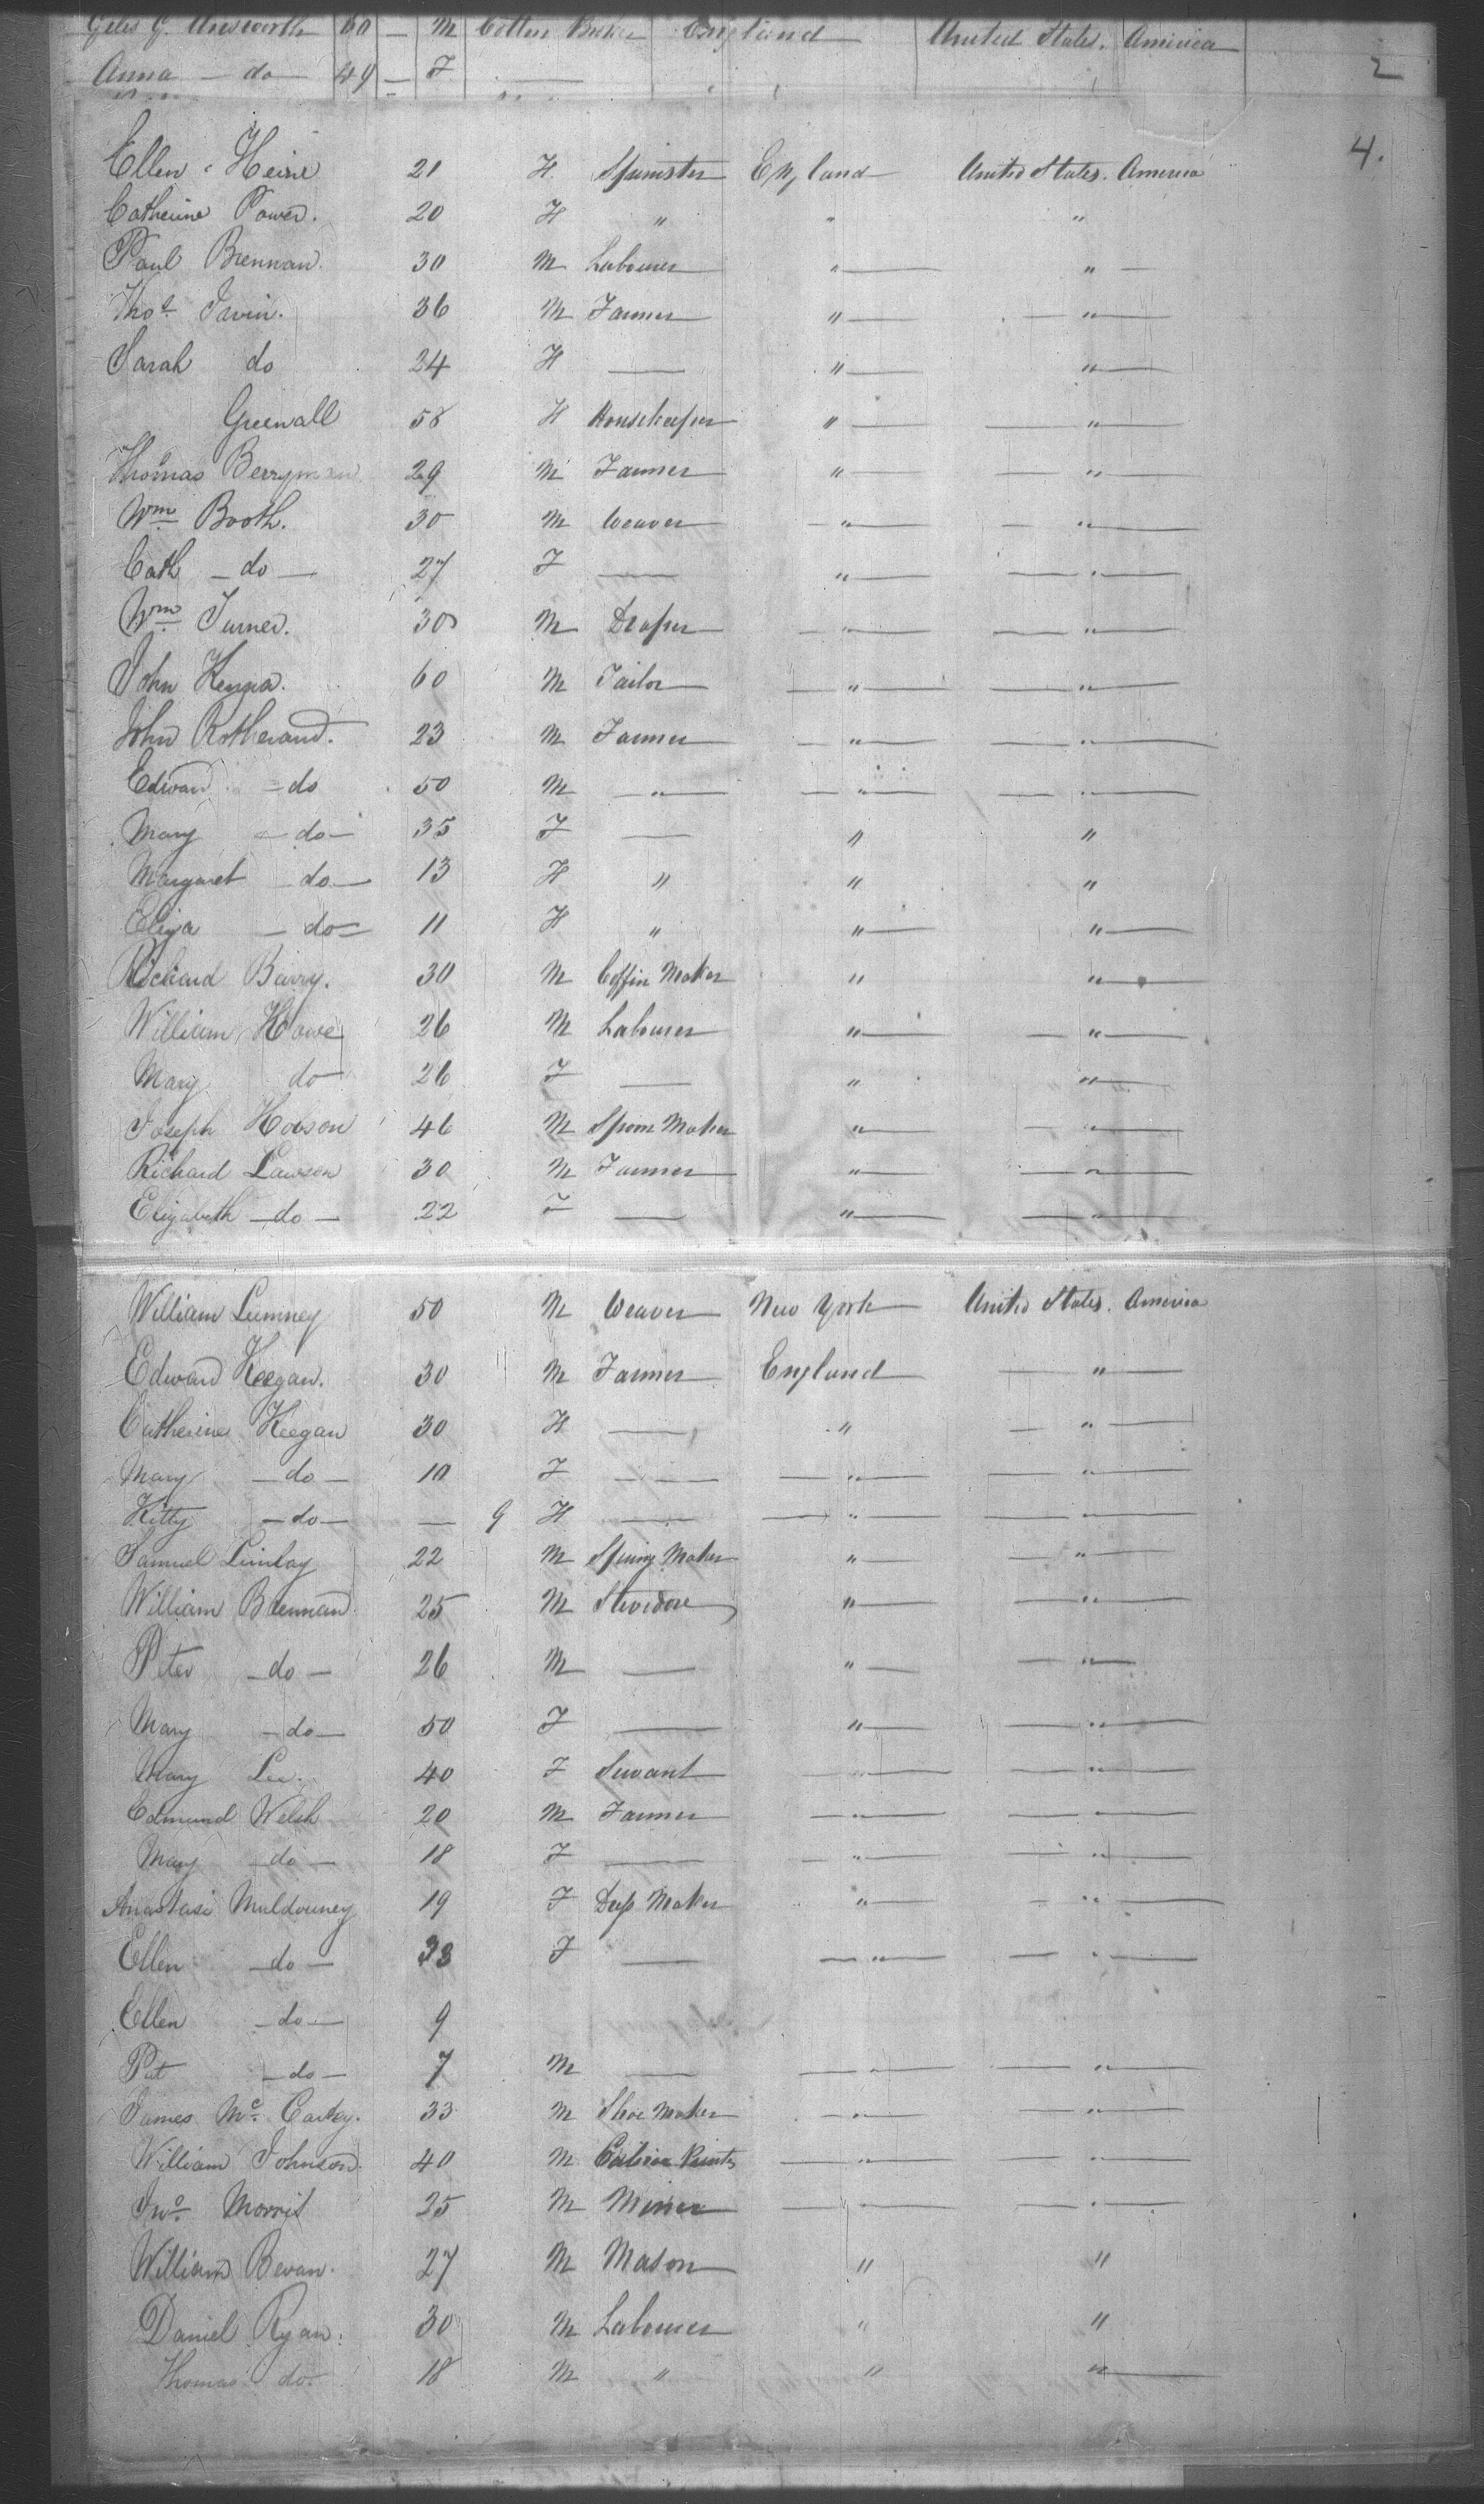 Giles G. Ainsworth 60 — M Cotton Broker England United States. America
Anna — do — 49 — F —
2
4.
Ellen Heine 21 H Spinster England United States. America
Catherine Power. 20 H " " "
Paul Brennan. 30 M Labourer " "
Thos. Javin. 36 M Farmer " "
Sarah do 24 H — " "
Greenall 58 H Housekeeper " "
Thomas Berryman 29 M Farmer " "
Wm. Booth. 30 M Weaver " "
Cath — do — 27 F — " "
Wm. Turner. 30 M Draper " "
John Kenna. 60 M Tailor " "
John Rotherand. 23 M Farmer " "
Edward — do 50 M " " "
Mary — do — 35 F — " "
Margaret — do — 13 H " " "
Eliza — do — 11 H " " "
Richard Barry. 30 M Coffin Maker " "
William Howe 26 M Labourer " "
Mary do 26 F — " "
Joseph Hobson 46 M Spoon Maker " "
Richard Lawson 30 M Farmer " "
Elizabeth — do — 22 F — " "
William Lumney 50 M Weaver New York United States. America
Edward Keegan. 30 M Farmer England "
Catherine Keegan 30 H — " "
Mary — do — 10 F — " "
Kitty — do — — 9 H — " "
Samuel Linlay 22 M Spring Maker " "
William Brennan 25 M Stevedore " "
Peter — do — 26 M — " "
Mary — do — 50 F — " "
Mary Lee. 40 F Servant " "
Edmund Welsh 20 M Farmer " "
Mary — do — 18 F — " "
Anastasi Muldowney 19 F Dress Maker " "
Ellen — do — 33 F — " "
Ellen — do — 9
Pat — do — 7 M — " "
James Mc. Cartey. 33 M Shoe Maker " "
William Johnson. 40 M Calico Printer " "
Jno. Morris 25 M Miner " "
William Bevan. 27 M Mason " "
Daniel Ryan. 30 M Labourer " "
Thomas do. 18 M " " "